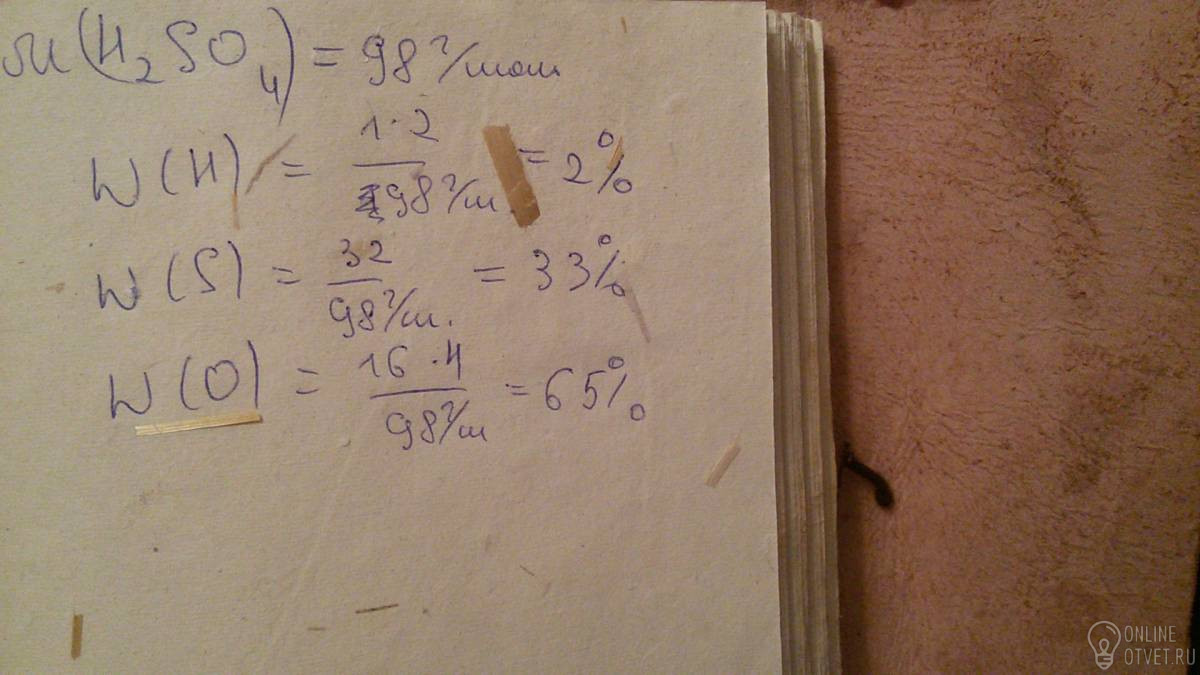 M(H₂SO₄) = 98 г/моль
W(H) = 1·2 / 98 г/м. = 2%
W(S) = 32 / 98 г/м. = 33%
W(O) = 16·4 / 98 г/м = 65%
ONLINE
OTVET.RU